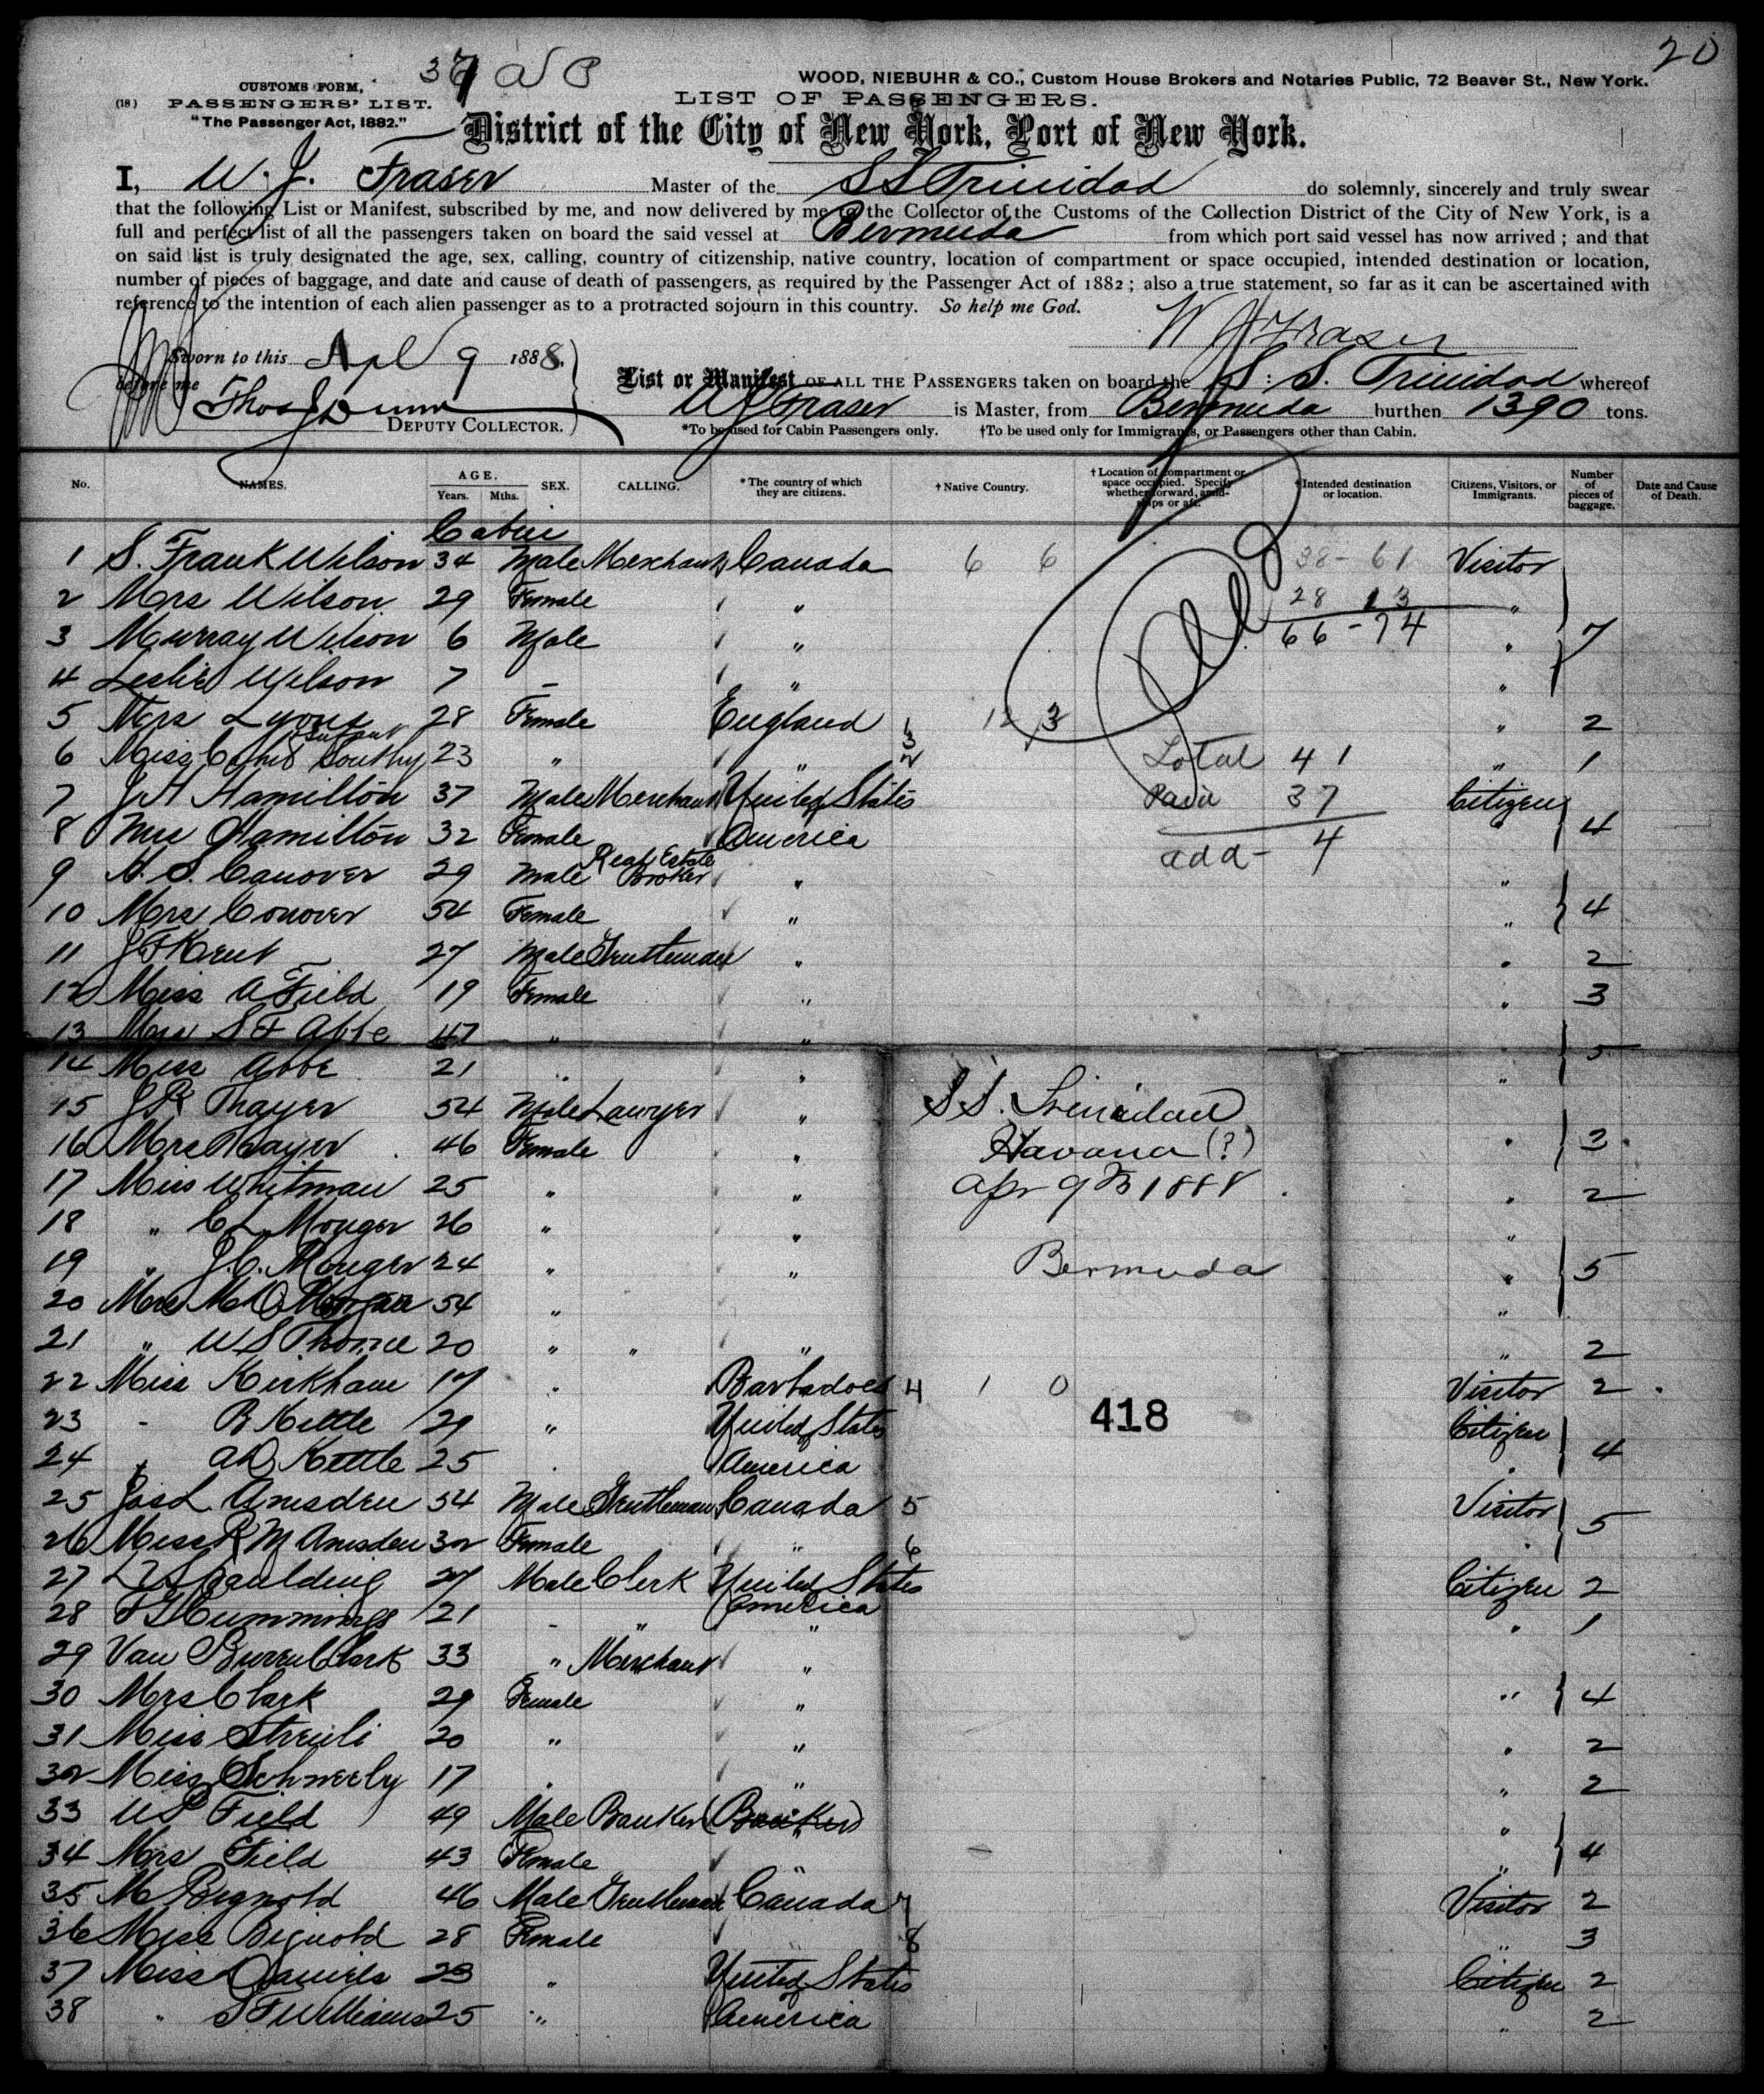 20
CUSTOMS FORM,
(18) PASSENGERS' LIST.
"The Passenger Act, 1882."
WOOD, NIEBUHR & CO., Custom House Brokers and Notaries Public, 72 Beaver St., New York.
LIST OF PASSENGERS.
District of the City of New York, Port of New York.
I, W. J. Fraser Master of the SS Trinidad do solemnly, sincerely and truly swear
that the following List or Manifest, subscribed by me, and now delivered by me to the Collector of the Customs of the Collection District of the City of New York, is a
full and perfect list of all the passengers taken on board the said vessel at Bermuda from which port said vessel has now arrived; and that
on said list is truly designated the age, sex, calling, country of citizenship, native country, location of compartment or space occupied, intended destination or location,
number of pieces of baggage, and date and cause of death of passengers, as required by the Passenger Act of 1882; also a true statement, so far as it can be ascertained with
reference to the intention of each alien passenger as to a protracted sojourn in this country. So help me God.
W J Fraser
Sworn to this Apl 9 1888.
before me
Thos J Dunn
DEPUTY COLLECTOR.
List or Manifest OF ALL THE PASSENGERS taken on board the S. S. Trinidad whereof
W J Fraser is Master, from Bermuda burthen 1390 tons.
*To be used for Cabin Passengers only. †To be used only for Immigrants, or Passengers other than Cabin.
No. NAMES. AGE. Years. Mths. SEX. CALLING. *The country of which they are citizens. †Native Country. †Location of compartment or space occupied. Specify whether forward, amidships or aft. †Intended destination or location. Citizens, Visitors, or Immigrants. Number of pieces of baggage. Date and Cause of Death.
Cabin
1 S. Frank Wilson 34 Male Merchant Canada 6 6 38 - 61 Visitor
2 Mrs Wilson 29 Female " " 28 13 "
66 - 74
3 Murray Wilson 6 Male " " 7
4 Leslie Wilson 7 - " "
5 Mrs Lyons 28 Female England 12 3 " 2
Infant
6 Miss Southy 23 " " " 1
Total 41
7 J H Hamilton 37 Male Merchant United States Citizen
37
8 Mrs Hamilton 32 Female America " 4
add - 4
9 Canover 29 Male Real Estate Broker " "
10 Mrs Conover 54 Female " " 4
11 J F Kent 27 Male Gentleman " " 2
12 Miss A Field 19 Female " " 3
13 Mrs S F Abbe 47 " " " 5
14 Miss Abbe 21 " " "
15 Thayer 54 Male Lawyer "
SS. Trinidad
16 Mrs Thayer 46 Female " " 3
Havana (?)
17 Miss Whitman 25 " " " 2
Apr 9th 1888
18 " C L Monger 26 " " "
19 " J. C. Monger 24 " " " 5
Bermuda
20 Mrs 54 " "
21 " W S Thorne 20 " " " " 2
22 Miss Kirkham 17 " Barbadoes 4 1 0 Visitor 2
418
23 - B Kettle 29 " United States Citizen
24 " A D Kettle 25 " America " 4
25 Jas L Amsden 54 Male Gentleman Canada 5 Visitor
26 Miss R M Amsden 32 Female " 6 " 5
27 Spaulding 27 Male Clerk United States Citizen 2
28 Cummings 21 - " America " 1
29 Van Buren Clark 33 " Merchant "
30 Mrs Clark 29 Female " " 4
31 Miss Streuli 20 " " " 2
32 Miss 17 " " " 2
33 W P Field 49 Male Banker (Banker) "
34 Mrs Field 43 Female " " 4
35 M Bignold 46 Male Gentleman Canada 7 Visitor 2
36 Miss Bignold 28 Female 8 " 3
37 Miss Daniels 23 " United States Citizen 2
38 " S F Williams 25 " America " 2